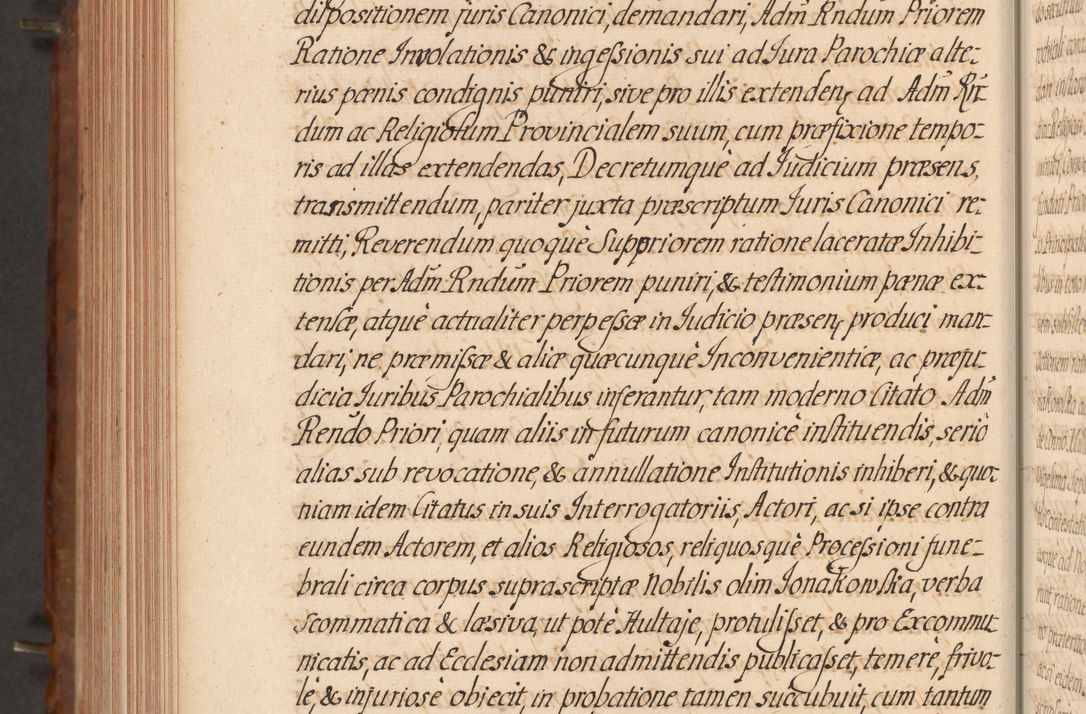 dispositionem juris Canonici, demandari, Adm̃ Rndum Priorem
Ratione Involationis & ingessionis sui ad Jura Parochiæ alte-
rius pœnis condignis puniri, sive pro illis extenden ad Adm̃ Rñ-
dum ac Religiosum Provincialem suum, cum præfixione tempo-
ris ad illas extendendas, Decretumquè ad Judicium præsens,
transmittendum, pariter juxta præscriptum Juris Canonici re-
mitti, Reverendum quoquè Suppriorem ratione laceratæ Inhibi-
tionis per Adm̃ Rndum Priorem puniri, & testimonium pænæ ex-
tensæ, atquè actualiter perpessæ in Judicio præsen produci man-
dari, ne præmissæ & aliæ quæcunquè Inconvenientiæ, ac præju-
dicia Juribus Parochialibus inferantur, tam moderno Citato Adm̃
Rendo Priori, quam aliis in futurum canonicè instituendis, seriò
alias sub revocatione, & annullatione Institutionis inhiberi, & quo-
niam idem Citatus in suis Interrogatoriis, Actori, ac si ipse contra
eundem Actorem, et alios Religiosos, reliquosquè Processioni fune-
brali circa corpus suprascriptæ Nobilis olim Jonakowska, verba
scommatica & læsiva, ut potè Hultaje, protulisset, & pro Excommu-
nicatis, ac ad Ecclesiam non admittendis publicasset, temerè, frivo-
lè, & injuriosè obiecit, in probatione tamen succubuit, cum tantum